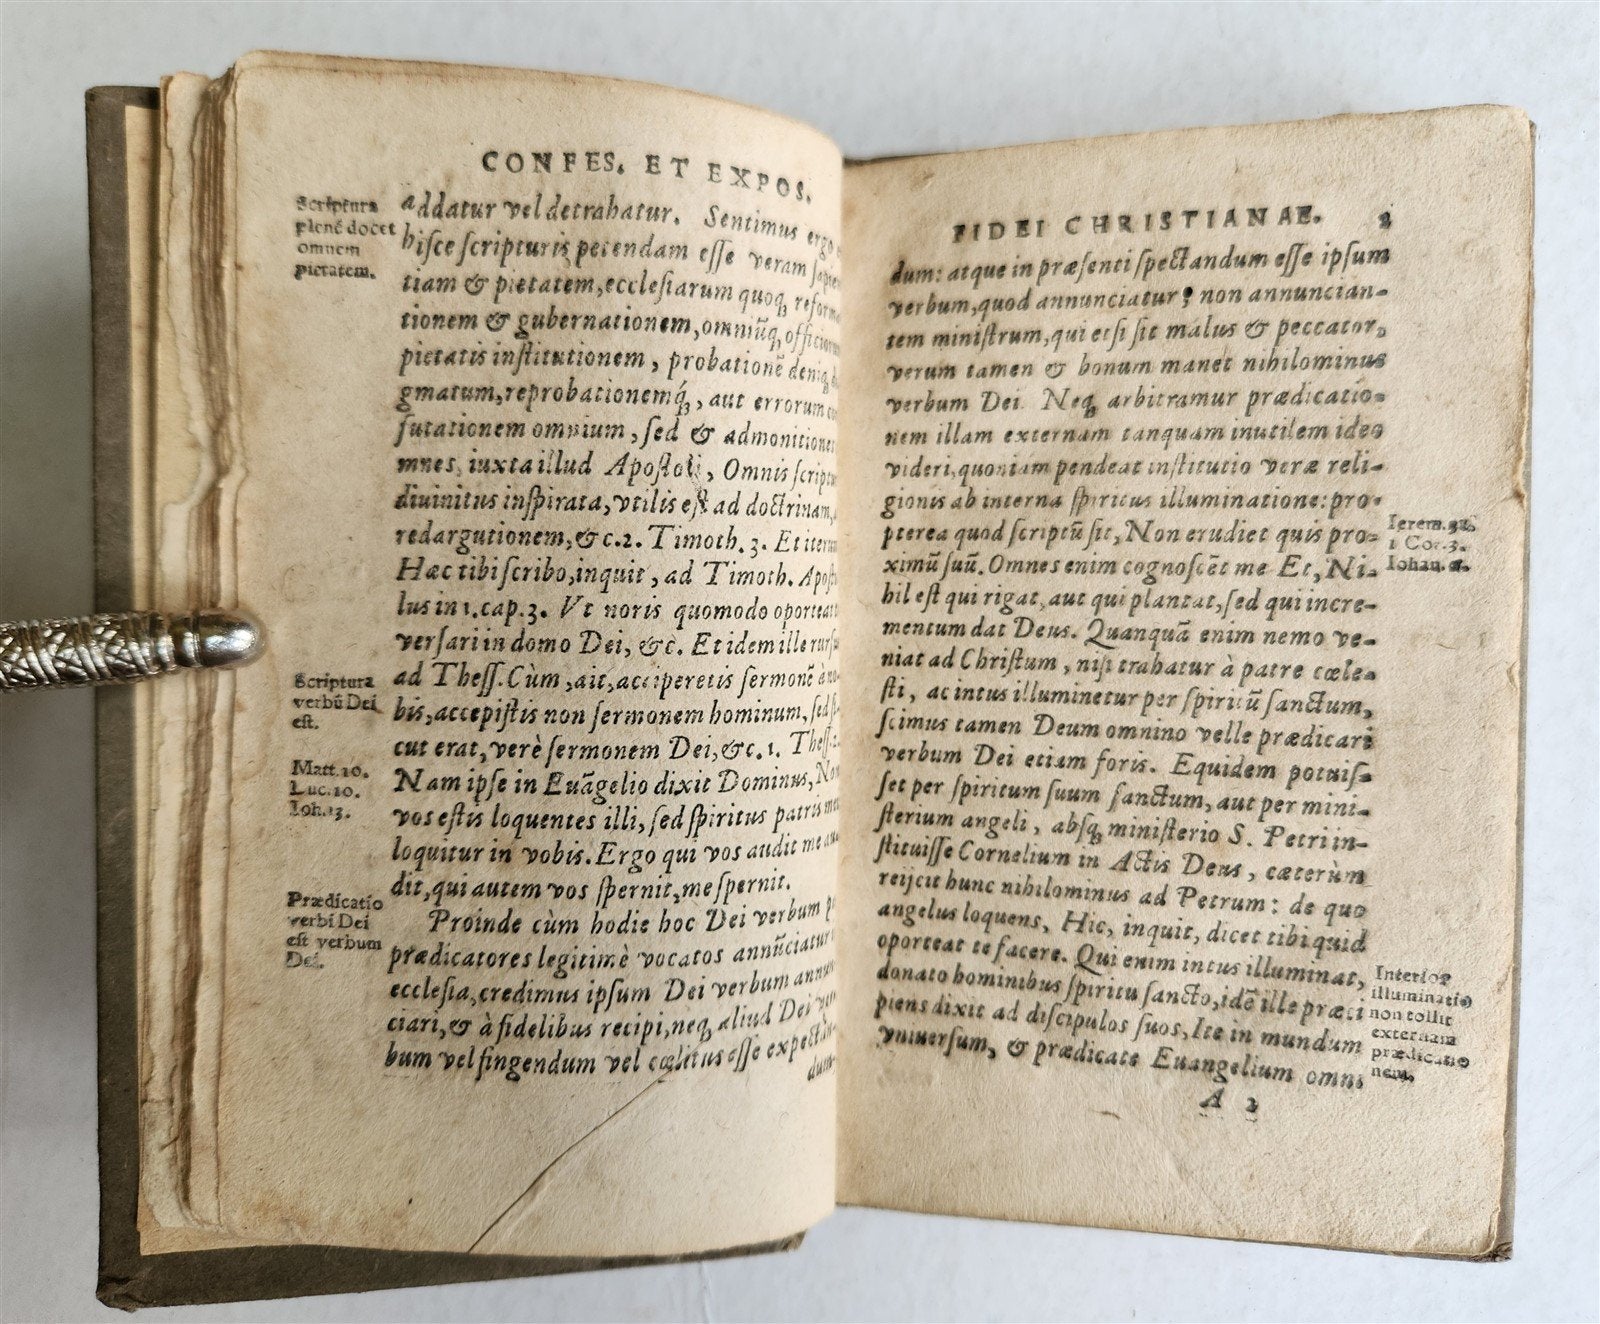 CONFES. ET EXPOS.
Scriptura
plenè docet
omnem
pietatem.
addatur vel detrahatur. Sentimus ergo
hisce scripturis petendam esse veram
tiam & pietatem, ecclesiarum quoq;
tionem & gubernationem, omniūq,
pietatis institutionem, probationē deniq;
gmatum, reprobationemq́;, aut errorum
futationem omnium, sed & admonitiones
mnes, iuxta illud Apostoli, Omnis
diuinitus inspirata, vtilis est ad doctrinam,
redargutionem, &c. 2. Timoth. 3. Et
Hæc tibi scribo, inquit, ad Timoth.
lus in 1. cap. 3. Vt noris quomodo oporteat
versari in domo Dei, &c. Et idem ille
Scriptura
verbū Dei
est.
ad Thess. Cùm, ait, acciperetis sermonē à
bis, accepistis non sermonem hominum,
cut erat, verè sermonem Dei, &c. 1.
Matt. 10.
Luc. 10.
Ioh. 13.
Nam ipse in Euāgelio dixit Dominus, Non
vos estis loquentes illi, sed spiritus patris
loquitur in vobis. Ergo qui vos audit me
dit, qui autem vos spernit, me spernit.
Prædicatio
verbi Dei
est verbum
Dei.
Proinde cùm hodie hoc Dei verbum
prædicatores legitimè vocatos annūciatur
ecclesia, credimus ipsum Dei verbum
ciari, & à fidelibus recipi, neq; aliud Dei
bum vel fingendum vel cœlitus esse expectan-
dum-
FIDEI CHRISTIANAE. 2
dum: atque in præsenti spectandum esse ipsum
verbum, quod annunciatur, non annuncian-
tem ministrum, qui etsi sit malus & peccator,
verum tamen & bonum manet nihilominus
verbum Dei. Neq; arbitramur prædicatio-
nem illam externam tanquam inutilem ideo
videri, quoniam pendeat institutio veræ reli-
gionis ab interna spiritus illuminatione: pro-
pterea quod scriptū sit, Non erudiet quis pro-
ximū suū. Omnes enim cognoscēt me Et, Ni-
hil est qui rigat, aut qui plantat, sed qui incre-
Ierem.
1 Cor. 3.
Iohan.
mentum dat Deus. Quanquā enim nemo ve-
niat ad Christum, nisi trahatur à patre cœle-
sti, ac intus illuminetur per spiritū sanctum,
scimus tamen Deum omnino velle prædicari
verbum Dei etiam foris. Equidem potuis-
set per spiritum suum sanctum, aut per mini-
sterium angeli, absq; ministerio S. Petri in-
stituisse Cornelium in Actis Deus, cæterùm
reijcit hunc nihilominus ad Petrum: de quo
angelus loquens, Hic, inquit, dicet tibi quid
oporteat te facere. Qui enim intus illuminat,
donato hominibus spiritu sancto, idē ille præci
piens dixit ad discipulos suos, Ite in mundum
vniuersum, & prædicate Euangelium omni
Interior
illuminatio
non tollit
externam
prædicatio
nem.
A 2